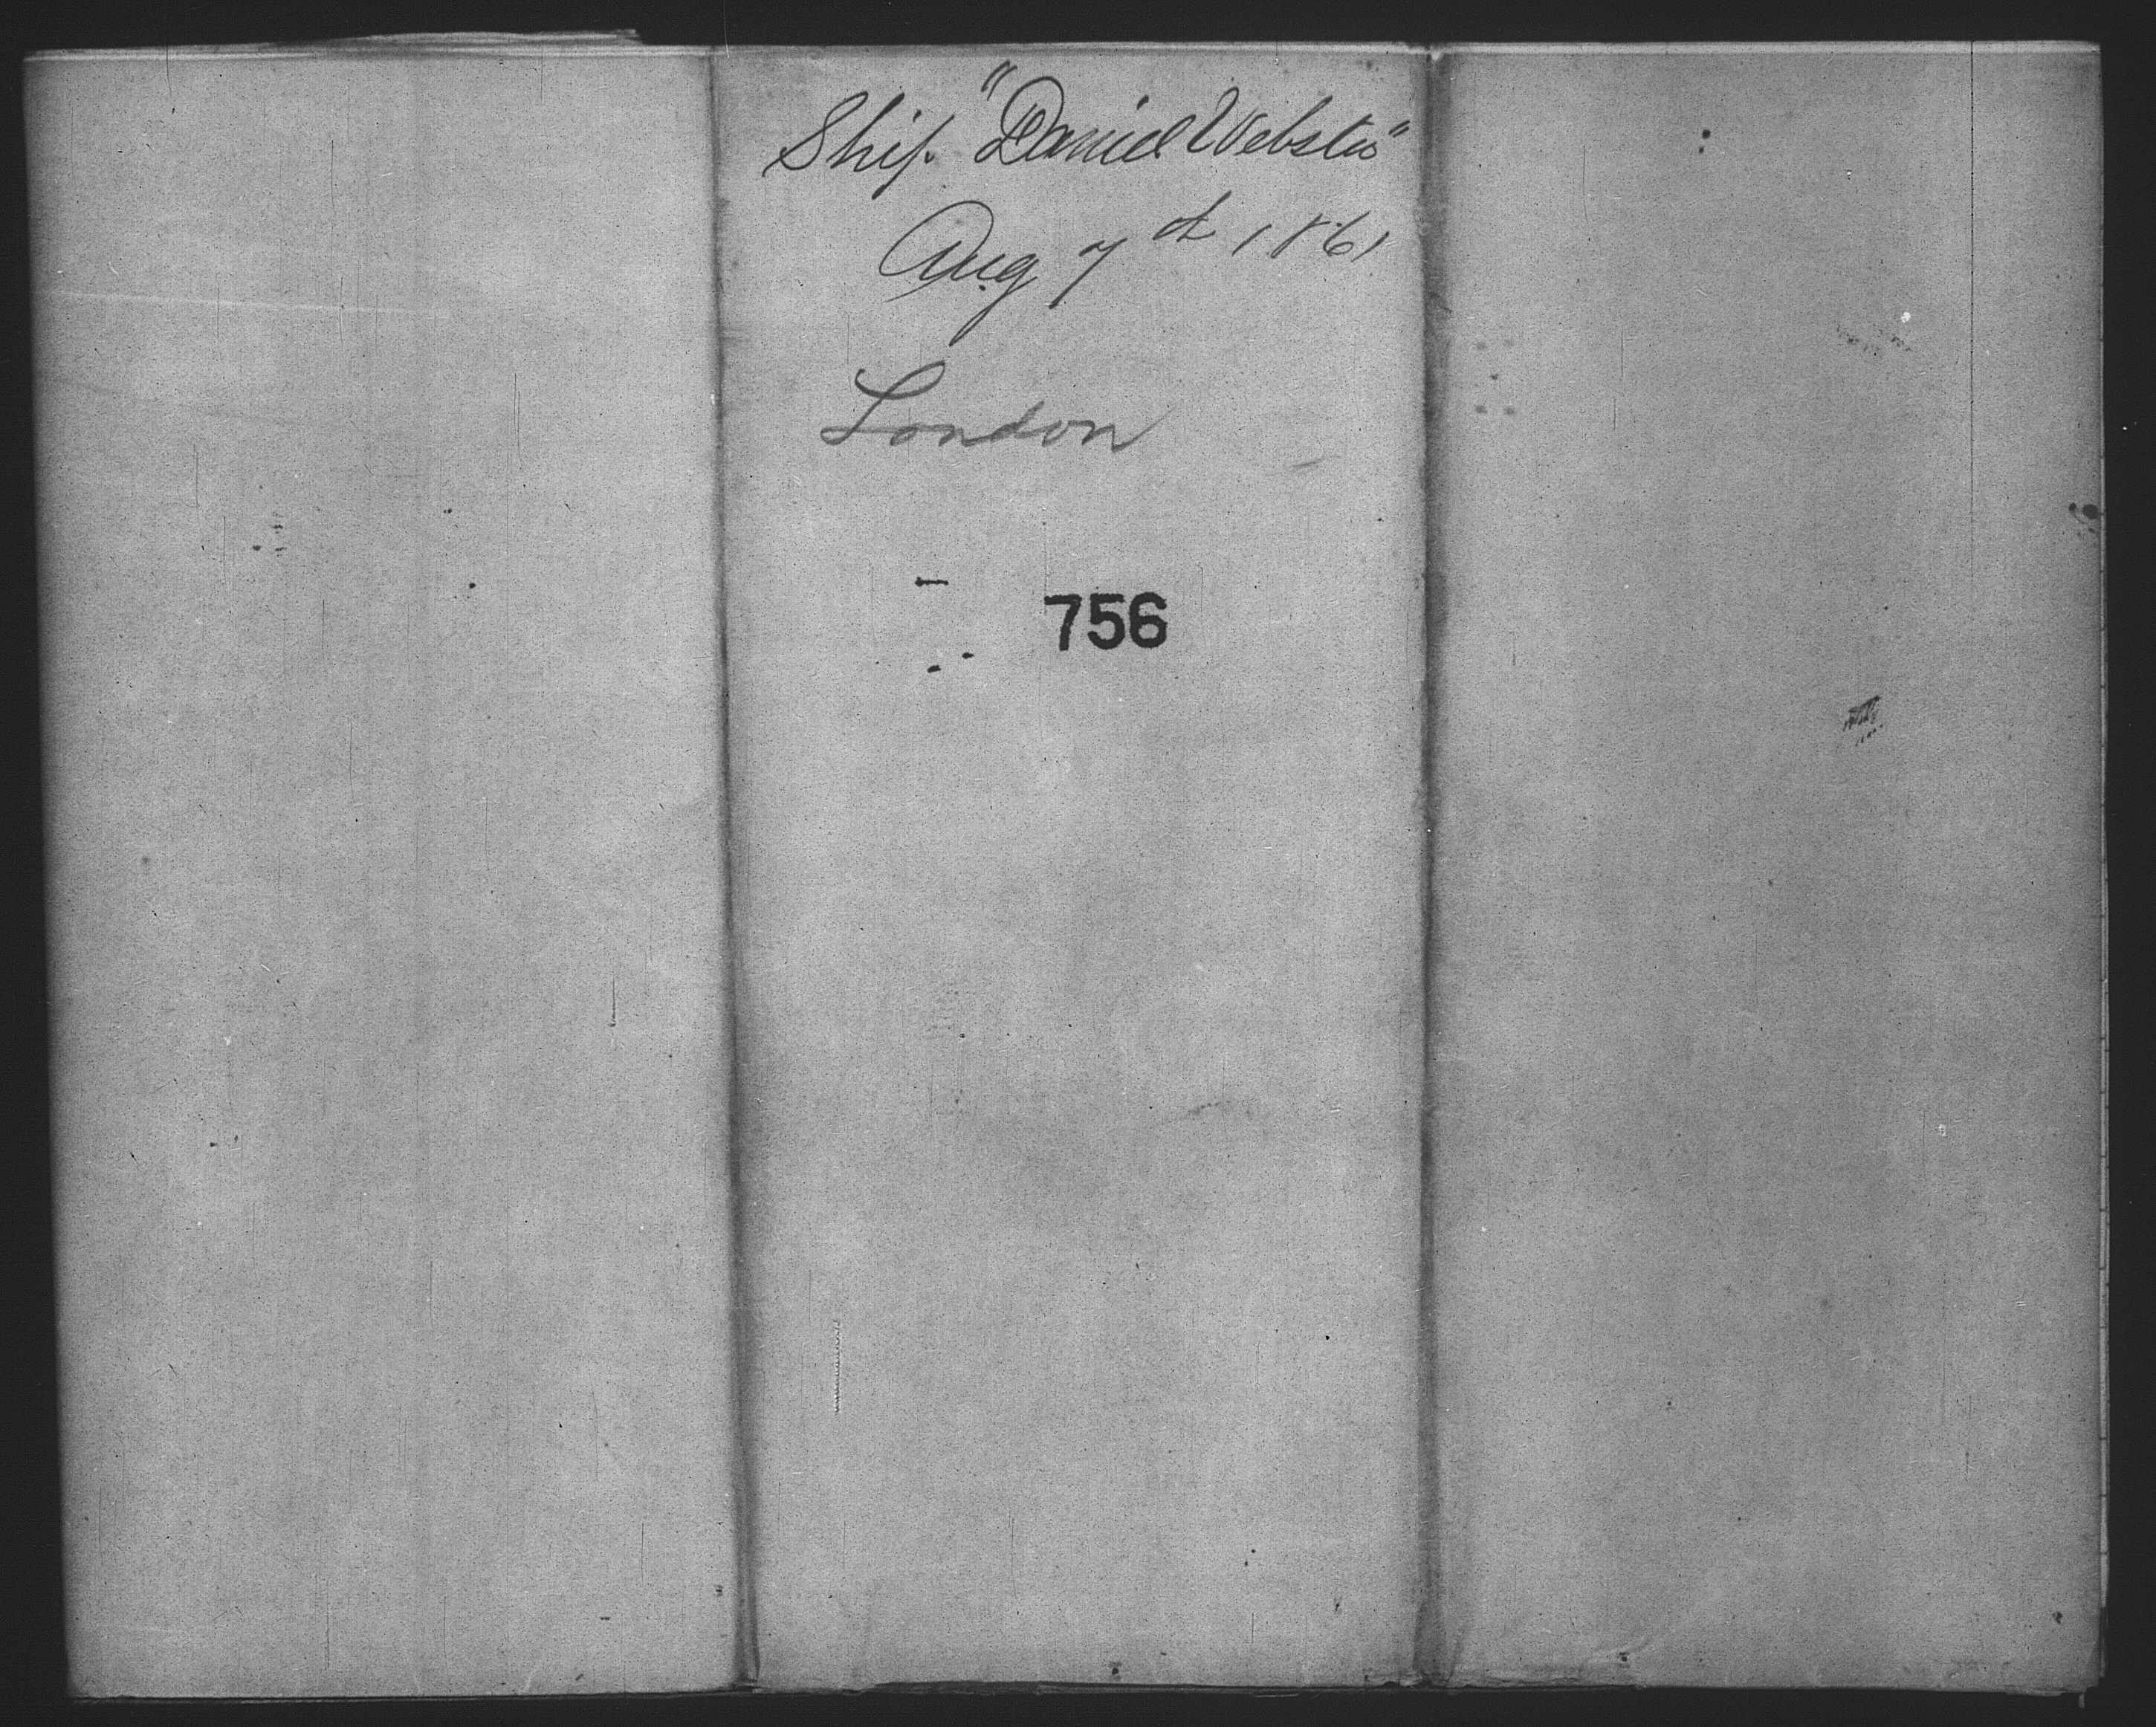 Ship "Daniel Webster"
Aug 7th 1861
London
756